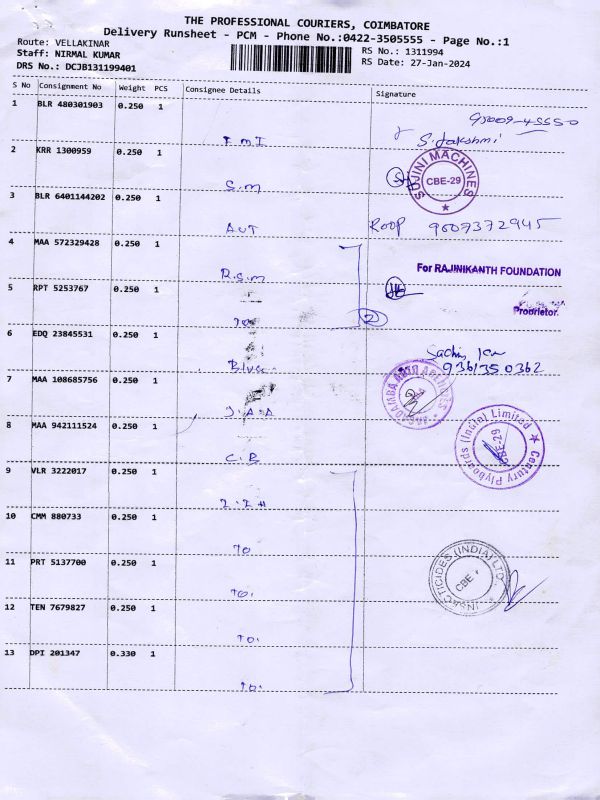 THE PROFESSIONAL COURIERS, COIMBATORE
Delivery Runsheet - PCM - Phone No.:0422-3505555 - Page No.:1
Route: VELLAKINAR
Staff: NIRMAL KUMAR
DRS No.: DCJB131199401
RS No.: 1311994
RS Date: 27-Jan-2024
S No Consignment No Weight PCS Consignee Details Signature
1 BLR 480301903 0.250 1
2 KRR 1300959 0.250 1 S.M SUJINI MACHINES CBE-29
3 BLR 6401144202 0.250 1 AUT ROOP 9607372945
4 MAA 572329428 0.250 1 R.S.M For RAJINIKANTH FOUNDATION
5 RPT 5253767 0.250 1 TO Proprietor.
6 EDQ 23845531 0.250 1 9361350362
7 MAA 108685756 0.250 1 J.A.A
8 MAA 942111524 0.250 1 C.B Century Plyboards (India) Limited CBE-29
9 VLR 3222017 0.250 1 I.I.H
10 CMM 880733 0.250 1 TO
11 PRT 5137700 0.250 1 TO. INSECTICIDES (INDIA) LTD CBE
12 TEN 7679827 0.250 1 TO.
13 DPI 201347 0.330 1 TO.